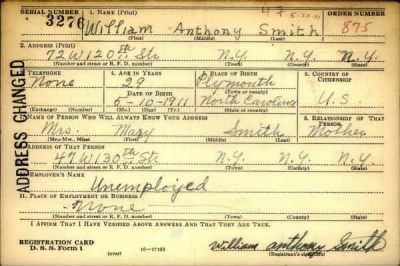 SERIAL NUMBER 1. NAME (Print) ORDER NUMBER
3276 William Anthony Smith 875
(First) (Middle) (Last)
2. ADDRESS (Print)
72 W 120th St. N.Y. N.Y. N.Y.
(Number and street or R. F. D. number) (Town) (County) (State)
ADDRESS CHANGED
3. TELEPHONE 4. AGE IN YEARS 5. PLACE OF BIRTH 6. COUNTRY OF CITIZENSHIP
None 29 Plymouth
DATE OF BIRTH (Town or county)
5-10-1911 North Carolina U.S.
(Exchange) (Number) (Mo.) (Day) (Yr.) (State or country)
7. NAME OF PERSON WHO WILL ALWAYS KNOW YOUR ADDRESS 8. RELATIONSHIP OF THAT PERSON
Mrs. Mary Smith Mother
(Mr., Mrs., Miss) (First) (Middle) (Last)
9. ADDRESS OF THAT PERSON
47 W 130th St. N.Y. N.Y. N.Y.
(Number and street or R. F. D. number) (Town) (County) (State)
10. EMPLOYER'S NAME
Unemployed
11. PLACE OF EMPLOYMENT OR BUSINESS
None
(Number and street or R. F. D. number) (Town) (County) (State)
I AFFIRM THAT I HAVE VERIFIED ABOVE ANSWERS AND THAT THEY ARE TRUE.
REGISTRATION CARD
D. S. S. FORM 1 (over) 16—17105 William Anthony Smith
(Registrant's signature)